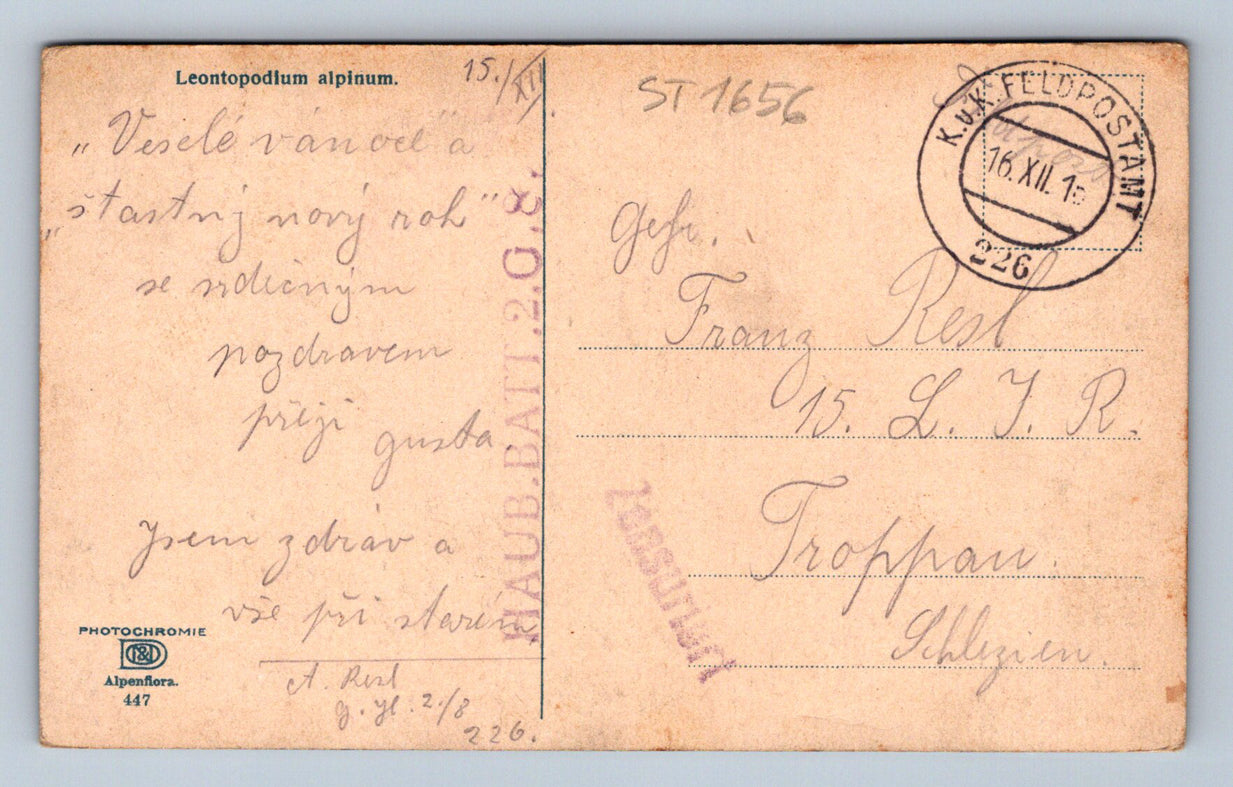 Leontopodium alpinum.
15./XII.
„Veselé vánoce" a
„šťastný nový rok"
se srdečným
pozdravem
přeji
gusta.
Jsem zdráv a
vše při starém
A. Resl
2./8
226.
PHOTOCHROMIE
Alpenflora.
447
HAUB.BATT.2.O.8.
ST 1656
K.u.K. FELDPOSTAMT
16.XII.15
226
Feldpost
Gefr.
Franz Resl
15. L. I. R.
Troppau.
Schlezien.
Zensuriert